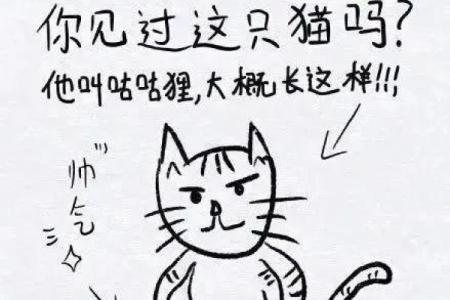 你见过这只猫吗?
他叫咕咕狸,大概长这样!!!
帅气